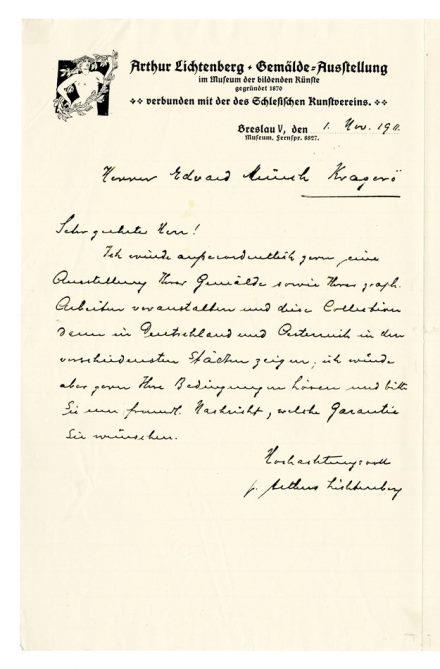 Arthur Lichtenberg · Gemälde-Ausstellung
im Museum der bildenden Künste
gegründet 1870
verbunden mit der des Schlesischen Kunstvereins.
Breslau V, den 1. Nov. 1911.
Museum. Fernspr. 8827.
Herrn Edvard Münch Kragerö
Sehr geehrter Herr!
Ich würde außerordentlich gern eine
Ausstellung Ihrer Gemälde sowie Ihrer graph.
Arbeiten veranstalten und diese Collection
dann in Deutschland und Oesterreich in den
verschiedensten Städten zeigen; ich würde
aber gern Ihre Bedingungen hören und bitte
Sie um freundl. Nachricht, welche Garantie
Sie wünschen.
Hochachtungsvoll
p. Arthur Lichtenberg